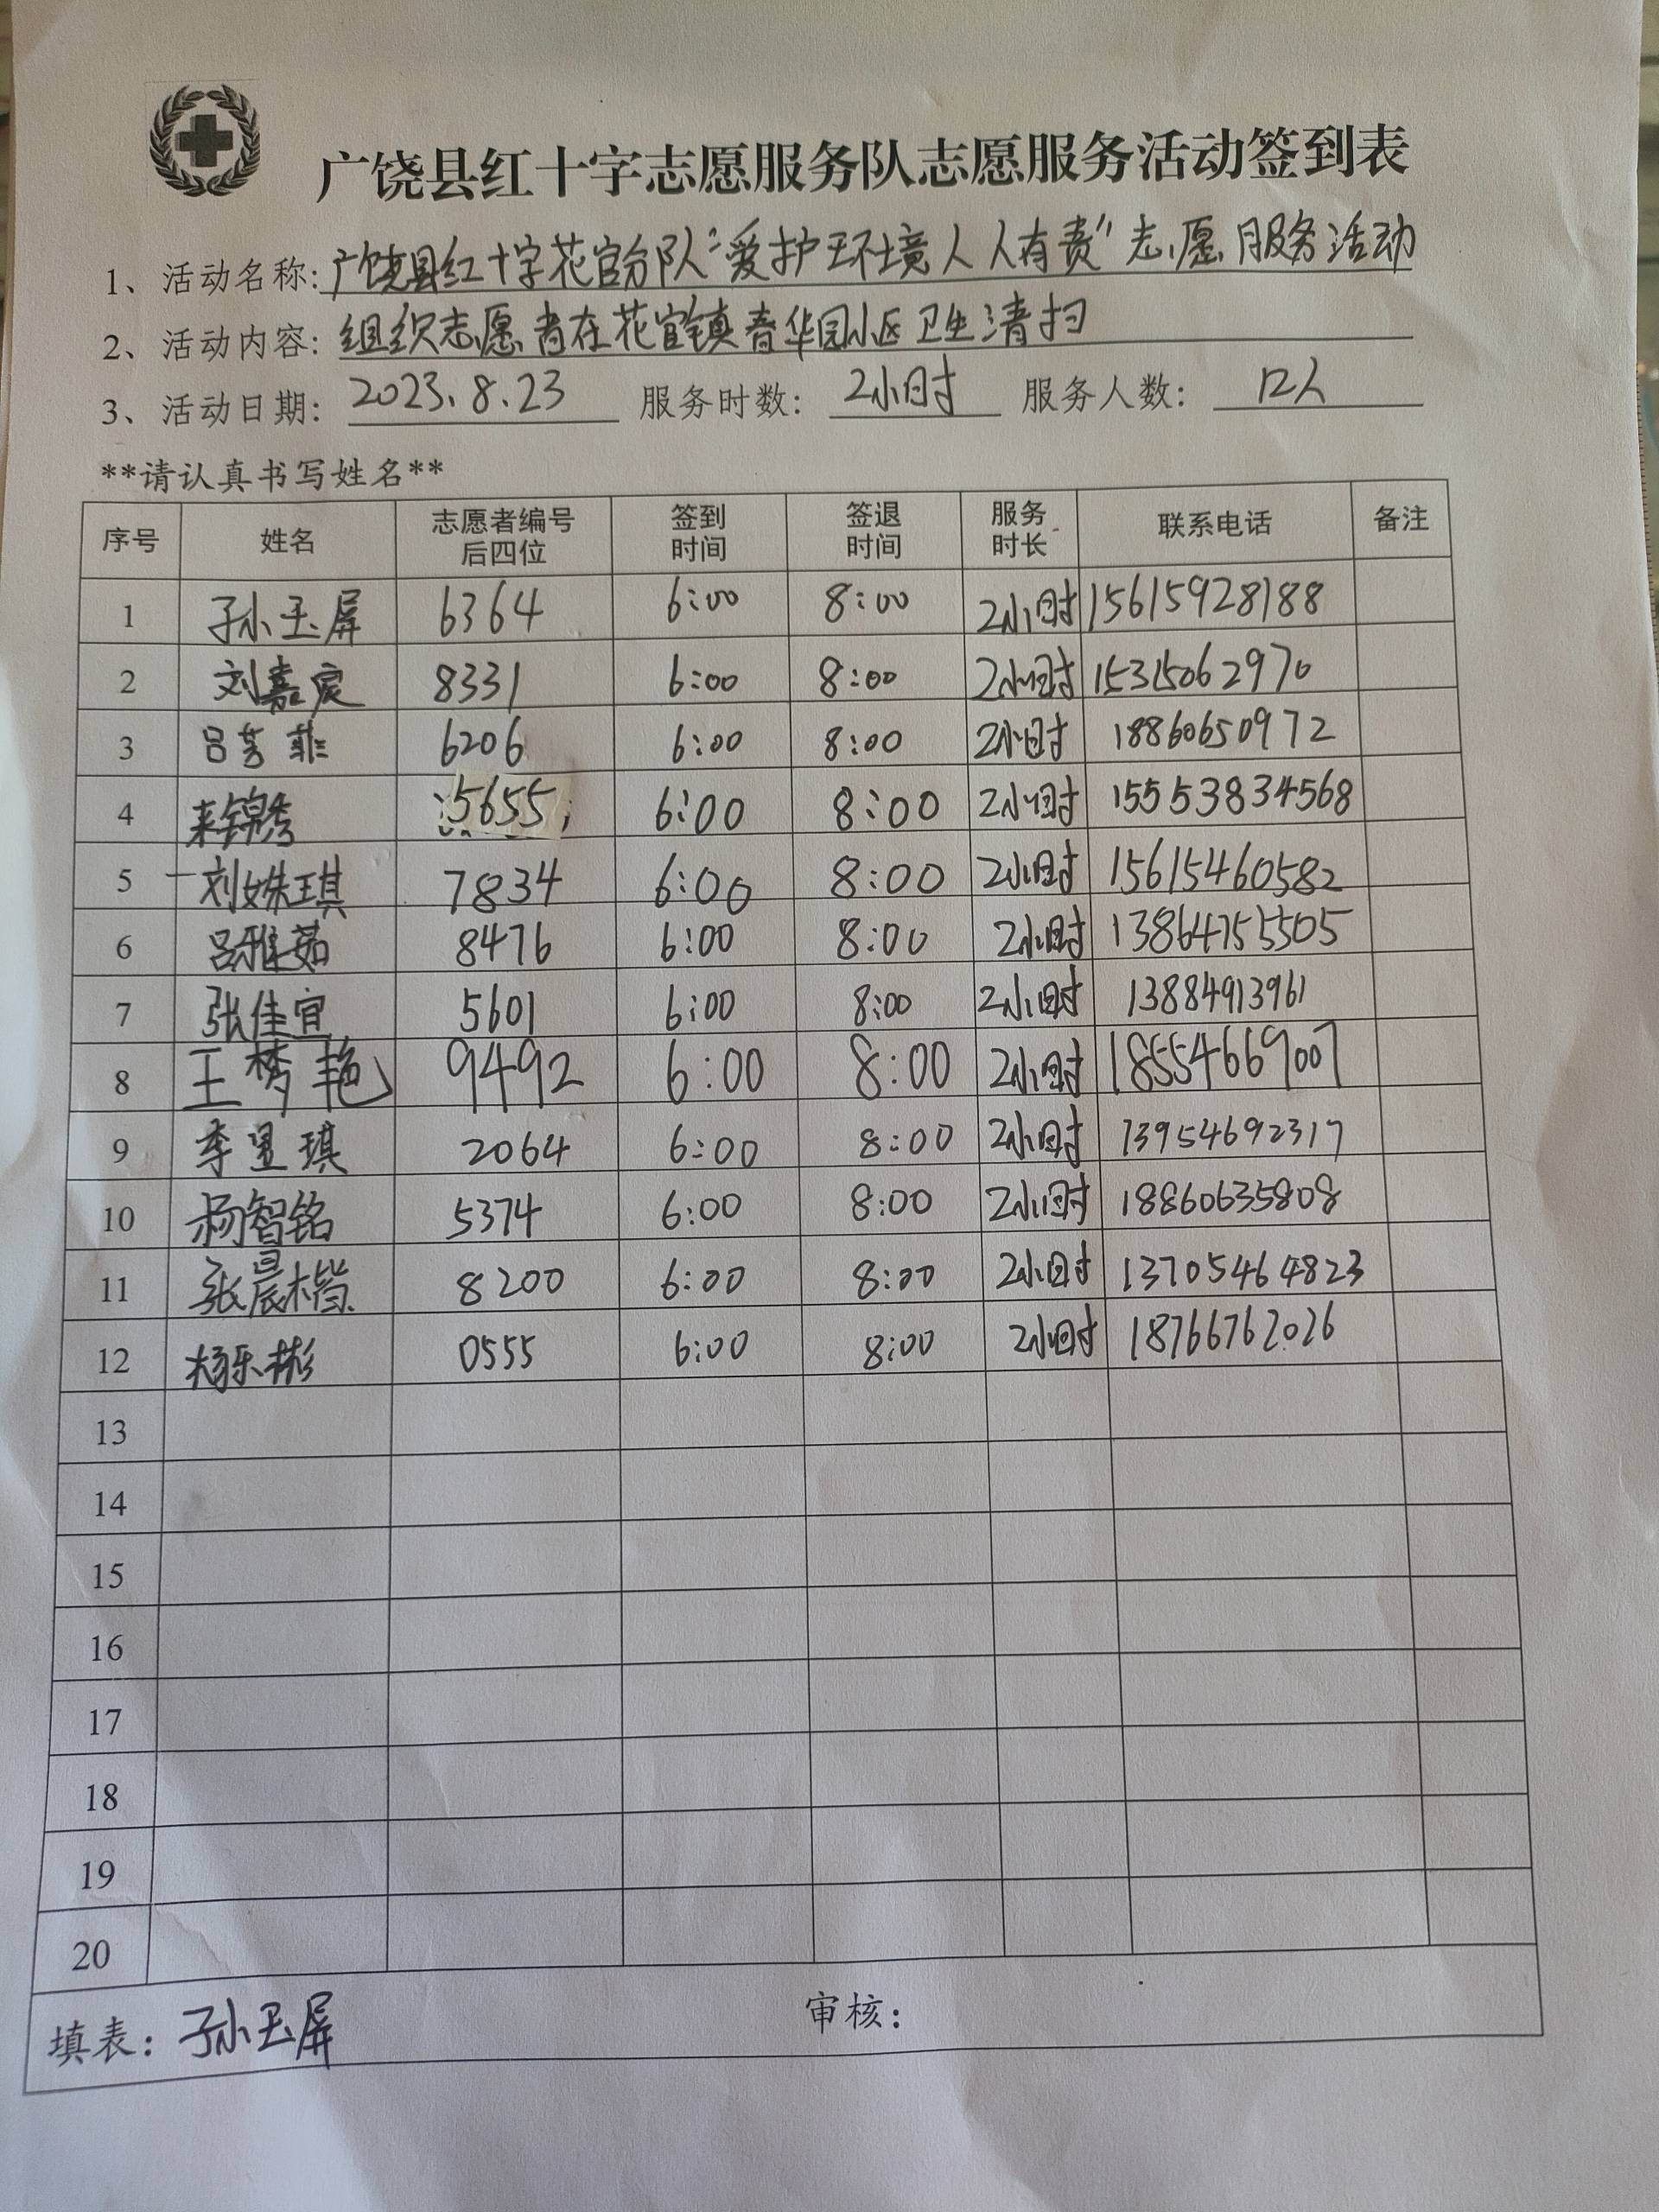 广饶县红十字志愿服务队志愿服务活动签到表
1、活动名称:广饶县红十字花官分队“爱护环境人人有责”志愿服务活动
2、活动内容:组织志愿者在花官镇春华园小区卫生清扫
3、活动日期: 2023.8.23 服务时数: 2小时 服务人数: 12人
**请认真书写姓名**
序号 姓名 志愿者编号后四位 签到时间 签退时间 服务时长 联系电话 备注
1 孙玉屏 6364 6:00 8:00 2小时 15615928188
2 刘嘉宸 8331 6:00 8:00 2小时 15315062970
3 吕芳菲 6206 6:00 8:00 2小时 18860650972
4 来锦秀 5655 6:00 8:00 2小时 15553834568
5 刘姝琪 7834 6:00 8:00 2小时 15615460582
6 吕雅茹 8476 6:00 8:00 2小时 13864755505
7 张佳宜 5601 6:00 8:00 2小时 13884913961
8 王梦艳 9492 6:00 8:00 2小时 18554669007
9 李昱琪 2064 6:00 8:00 2小时 13954692317
10 杨智铭 5374 6:00 8:00 2小时 18860635808
11 张晨楷 8200 6:00 8:00 2小时 13705464823
12 杨乐彬 0555 6:00 8:00 2小时 18766762026
13
14
15
16
17
18
19
20
填表: 孙玉屏 审核: